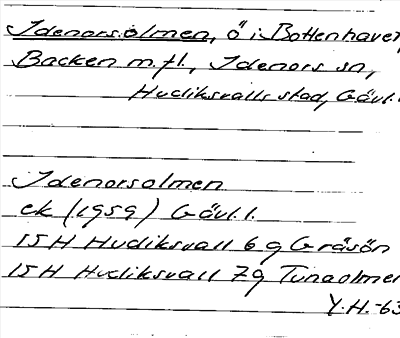 Idenorsolmen, ö i Bottenhavet,
Backen m.fl., Idenors sn,
Hudiksvalls stad, Gävl.l.
Idenorsolmen
ek (1959) Gävl.l.
15H Hudiksvall 6g Gräsön
15H Hudiksvall 7g Tunaolmen
Y.H.-63